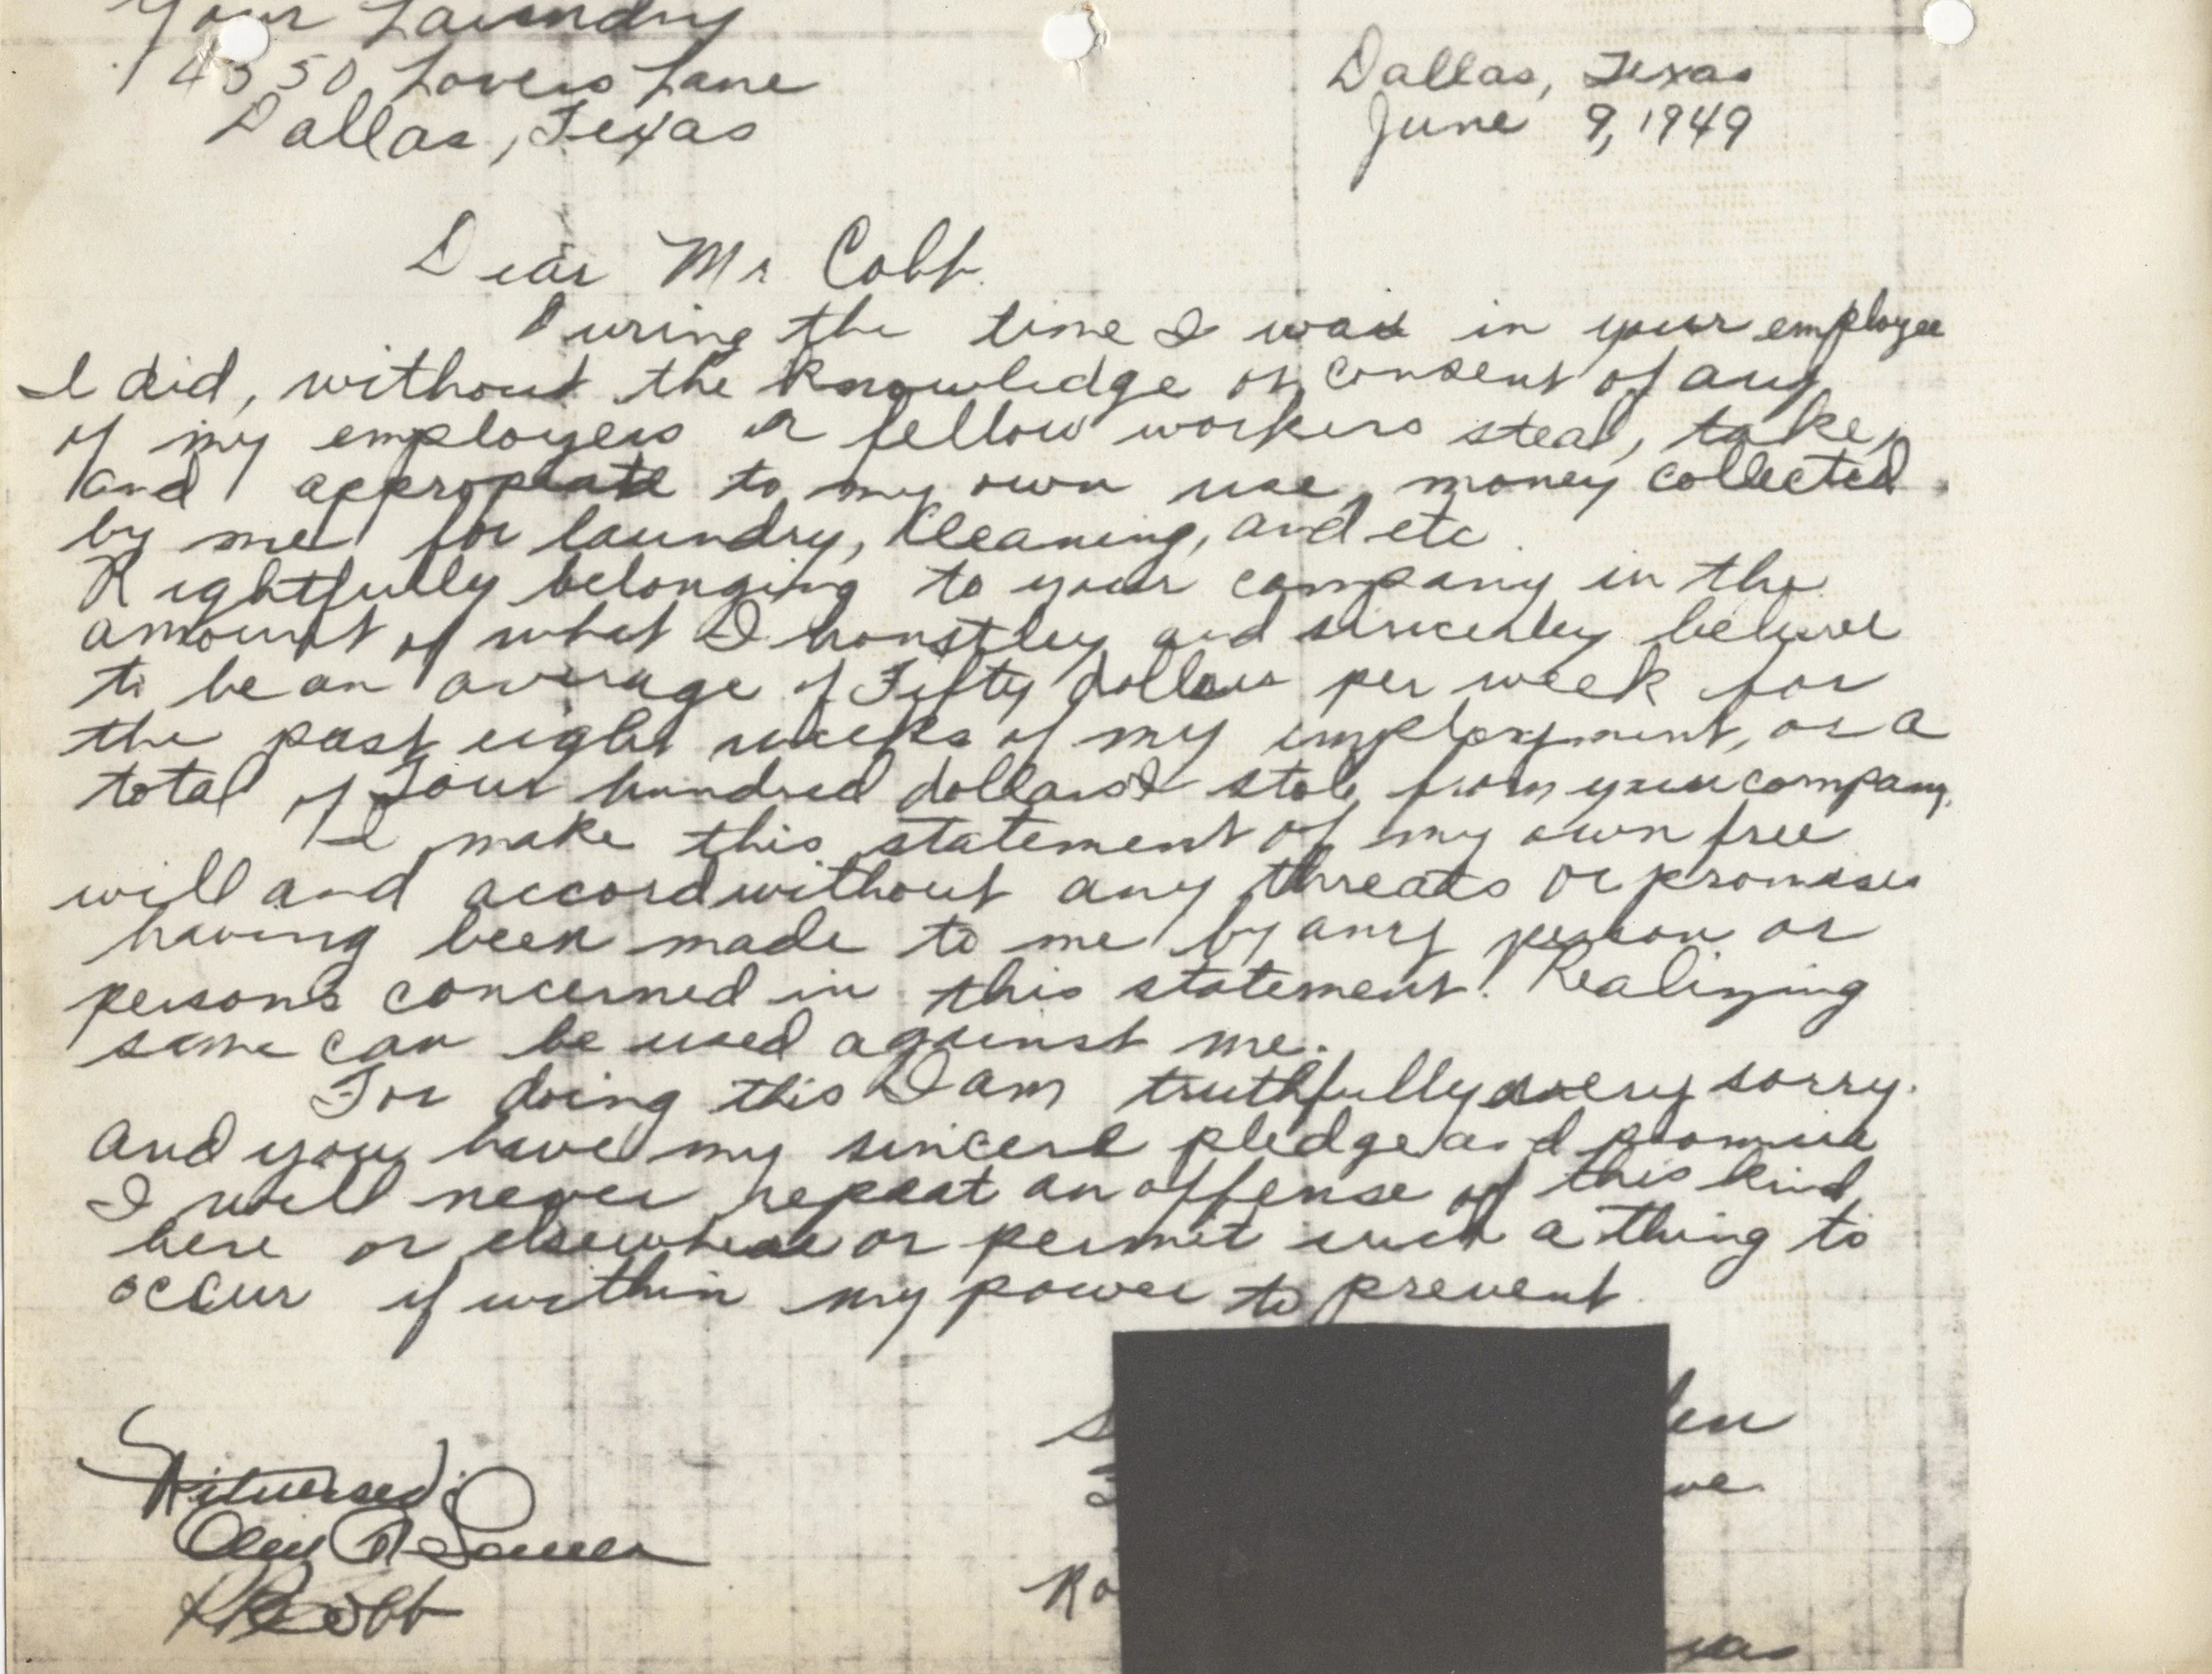 Your Laundry
4350 Lovers Lane
Dallas, Texas
Dallas, Texas
June 9, 1949
Dear Mr Cobb.
During the time I was in your employee
I did, without the knowledge or consent of any
of my employers or fellow workers steal, take,
and appropiate to my own use, money collected
by me for laundry, Cleaning, and etc.
Rightfully belonging to your company in the
amount of what I honstley and sincerley believe
to be an average of Fifty dollars per week for
the past eight weeks of my employment, or a
total of Four hundred dollars I stole from your company.
I make this statement of my own free
will and accord without any threats or promises
having been made to me by any person or
persons concerned in this statement. Realizing
same can be used against me.
For doing this I am truthfully very sorry.
And you have my sincere pledge and promise
I will never repeat an offense of this kind,
here or elsewhere or permit such a thing to
occur if within my power to prevent.
Witnessed:
Cobb